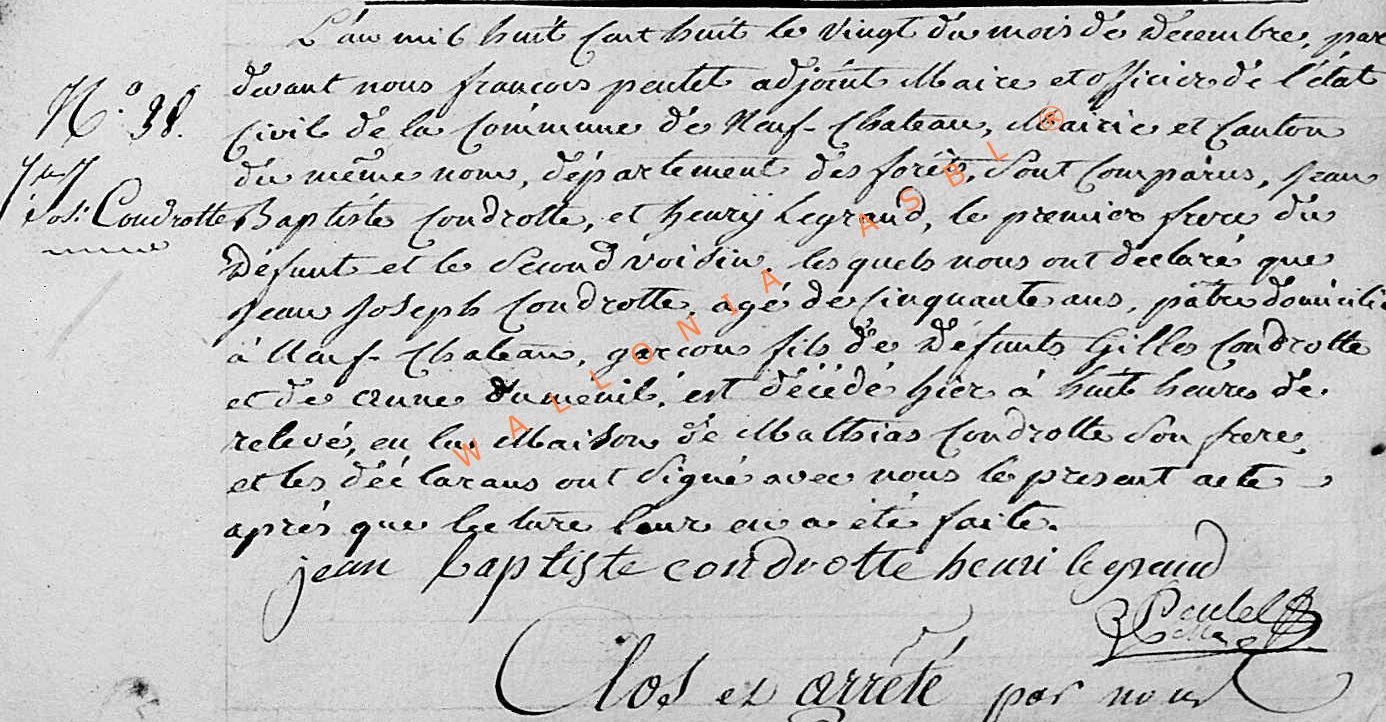 L'an mil huit cent huit le vingt du mois de Décembre, par
devant nous françois pentet adjoint Maire et officier de l'état
N.o 38.
Civil de la Commune de Neuf-Chateau, Mairie et Canton
du même nom, département des forêts, sont comparus, Jean
jos: Condrotte
Baptiste Condrotte, et henry Legrand, le premier frere du
Défunt et le second voisin, les quels nous ont declaré que
Jean Joseph Condrotte, agé de Cinquante ans, pâtre domicilié
à Neuf-Chateau, garcon fils de Défunts Gilles Condrotte
et de Dumenil, est décédé hièr à huit heures de
relevé, en la Maison de Mathias Condrotte son frere,
et les déclarans ont signé avec nous le present acte
aprés que lecture leur en a été faite.
jean baptiste condrotte henri legrand
Clos et arrêté par nous
WALLONIA ASBL ®